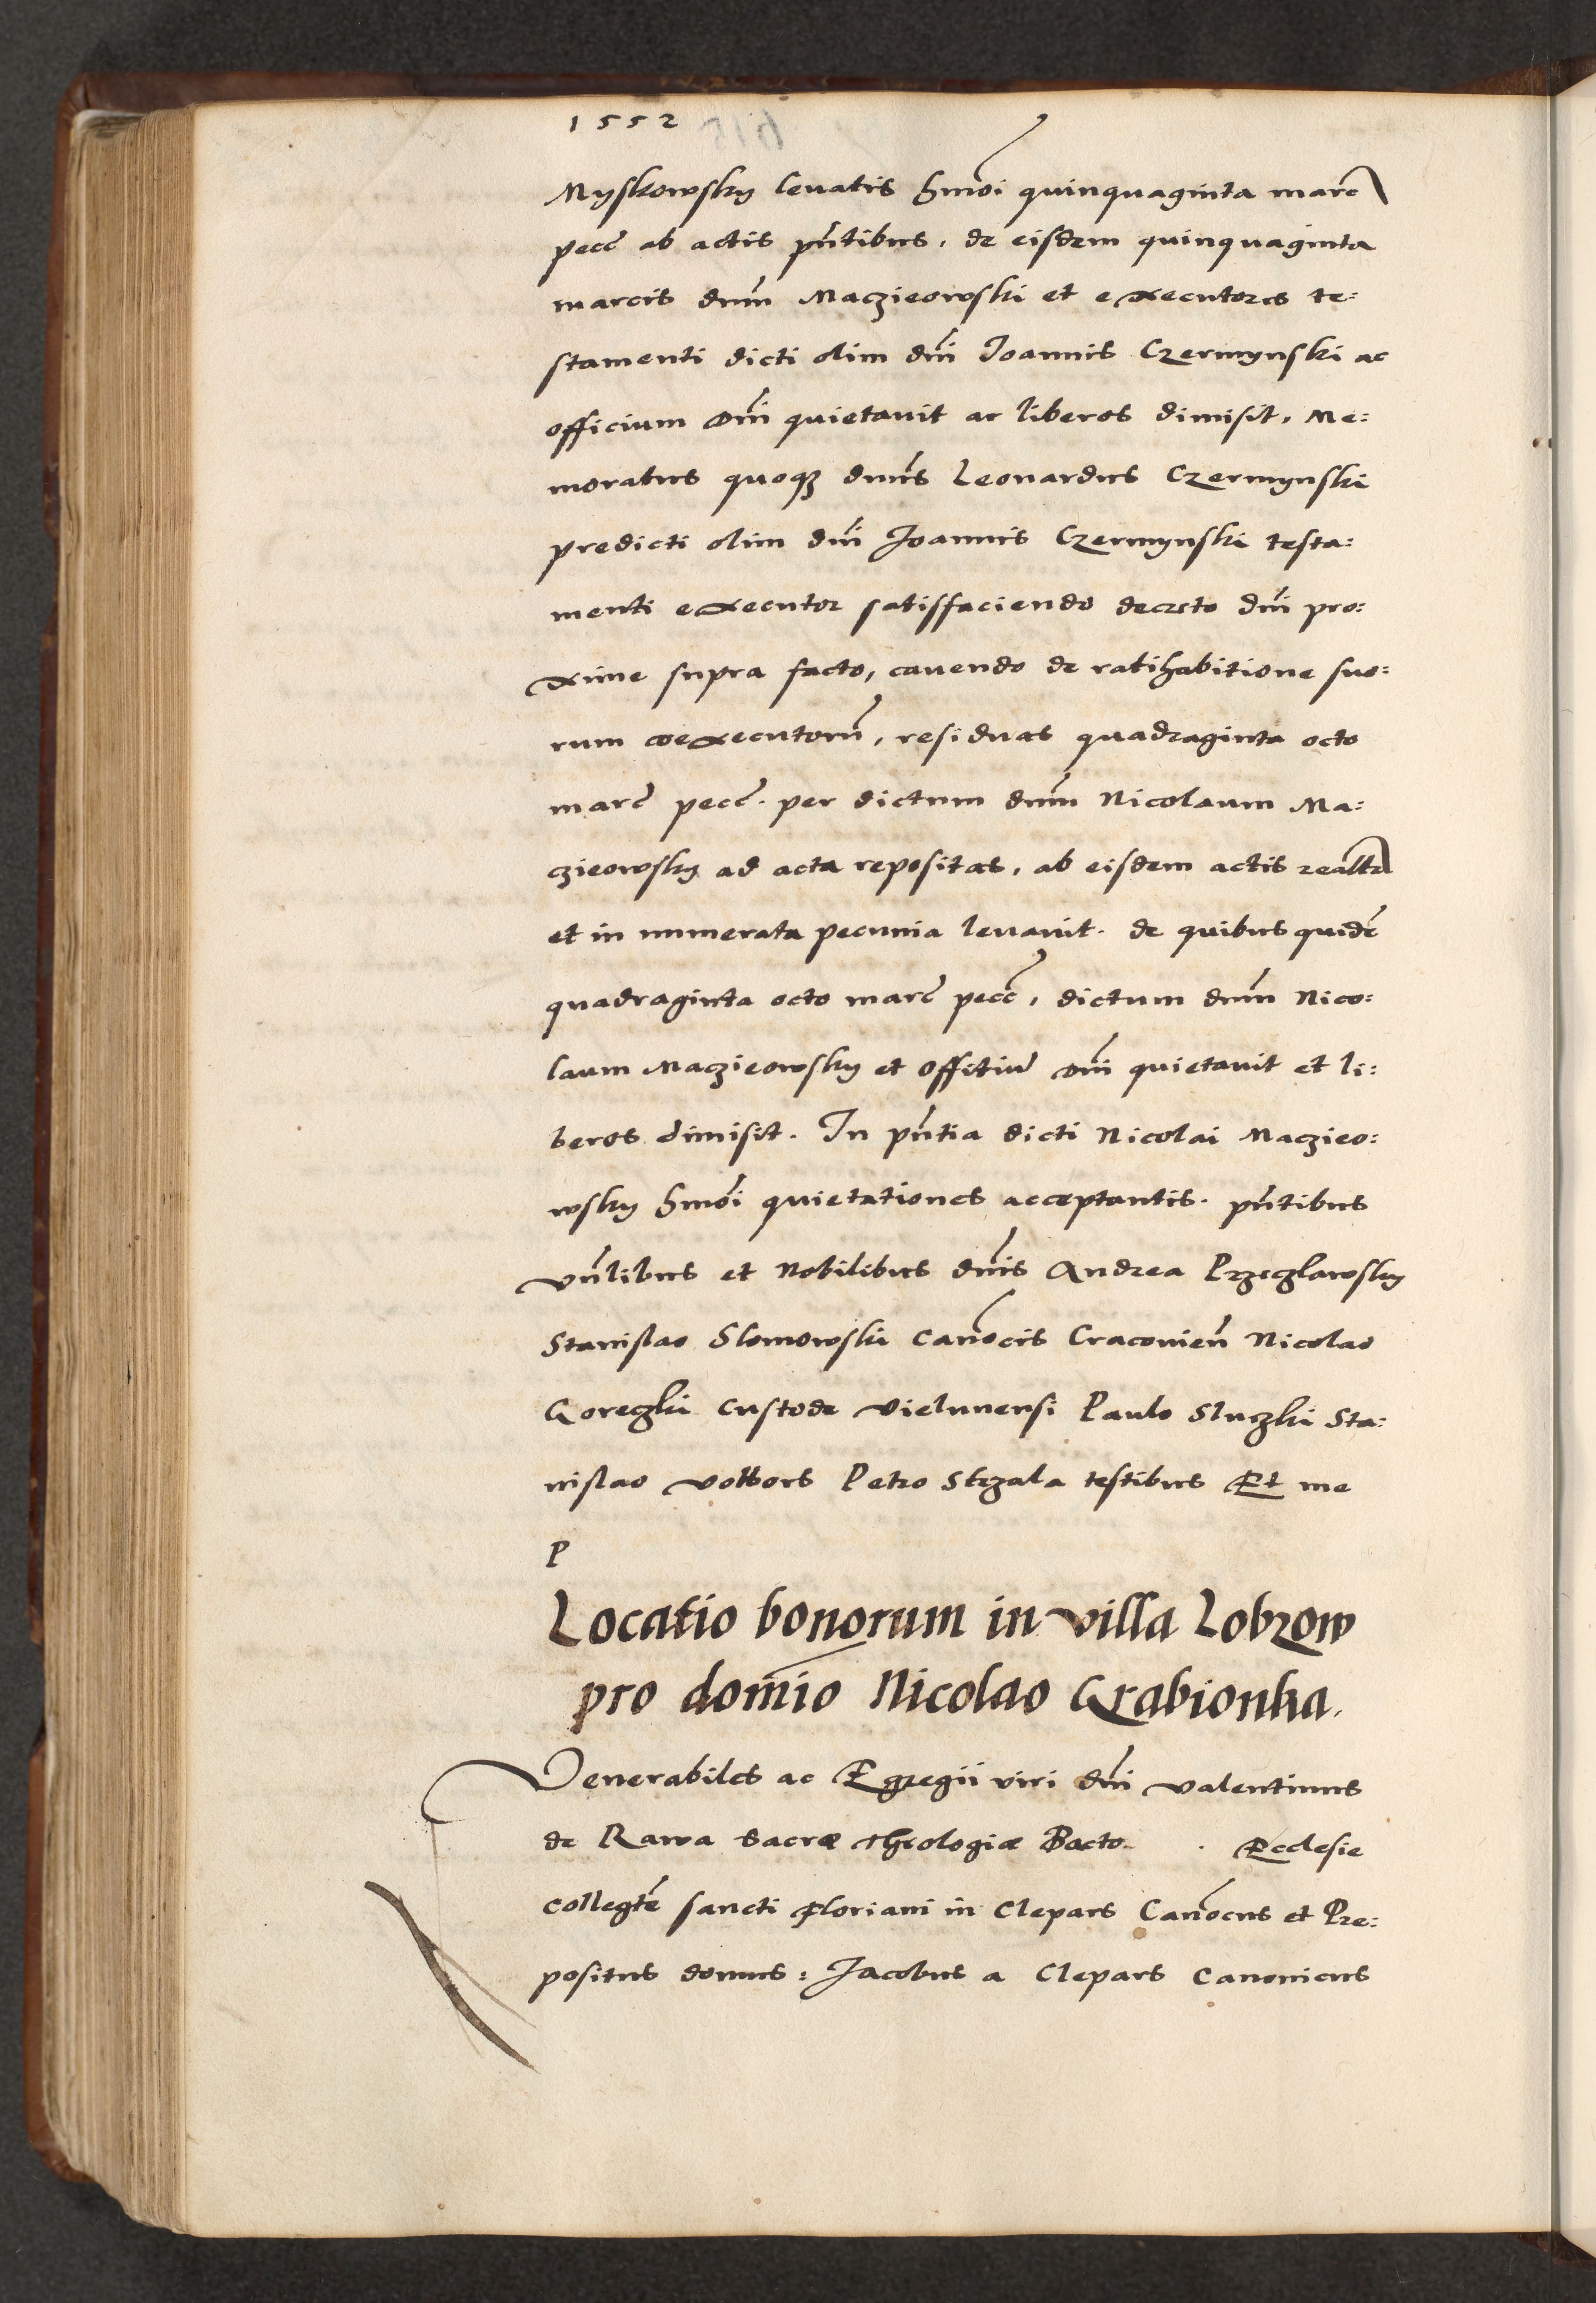 1552
Myskowsky levatis hmõi quinquaginta marc̃
pecc̃ ab actis pñtibus, de eisdem quinquaginta
marcis dnm̃ Maczieowski et executores te:
stamenti dicti olim dñi Joannis Czermynski ac
officium oñi quietavit ac liberos dimisit, Me:
moratus quoqꝫ dnũs Leonardus Czermynski
predicti olim dñi Joannis Czermynski testa:
menti executor satisffaciendo decreto dñi pro:
xime supra facto, cavendo de ratihabitione suo:
rum coexecutorũ, residuas quadraginta octo
marc̃ pecc̃. per dictum dnm̃ Nicolaum Ma:
czieowsky ad acta repositas, ab eisdem actis realtr̃
et in numerata pecunia levavit. de quibus quidẽ
quadraginta octo marc̃ pecc̃, dictum dnm̃ Nico:
laum Maczieowsky et offitiũ oñi quietavit et li:
beros dimisit. In pñtia dicti Nicolai Maczieo:
wsky hmõi quietationes acceptantis. pñtibus
vñlibus et Nobilibus dnĩs Andrea Przeczlawsky
Stanislao Slomowski Canõcis Craconieñ Nicolao
Goreczki custode vielunensi Paulo Sluczki Sta:
nislao Petro Strzala testibus Et me
P
Locatio bonorum in villa Lobzow
pro domĩo Nicolao Grabionka.
Venerabiles ac Egregii viri dñi valentinus
de Rawa sacræ Theologiæ Bacto. . Ecclesie
collegtẽ sancti floriani in Clepars Canõcus et Pre:
positus domus: Jacobus a Clepars Canonicus